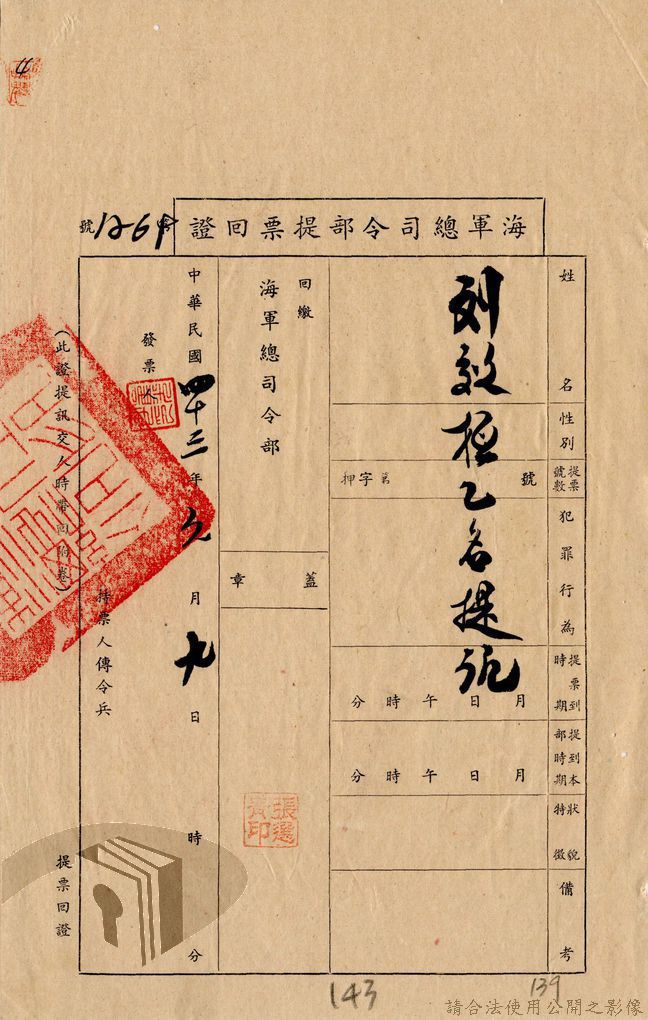 海軍總司令部提票回證
字1269號
姓名
性別
提票號數
犯罪行為
提票到時期
提到本部時期
特徵狀貌
備考
乙名提訊
押字第 號
月 日 午 時 分
月 日 午 時 分
回繳
海軍總司令部
蓋章
張選賓印
中華民國四十三年 月九日 時 分
發票人
持票人傳令兵
(此證提訊交人時帶回附卷)
提票回證
143
139
請合法使用公開之影像